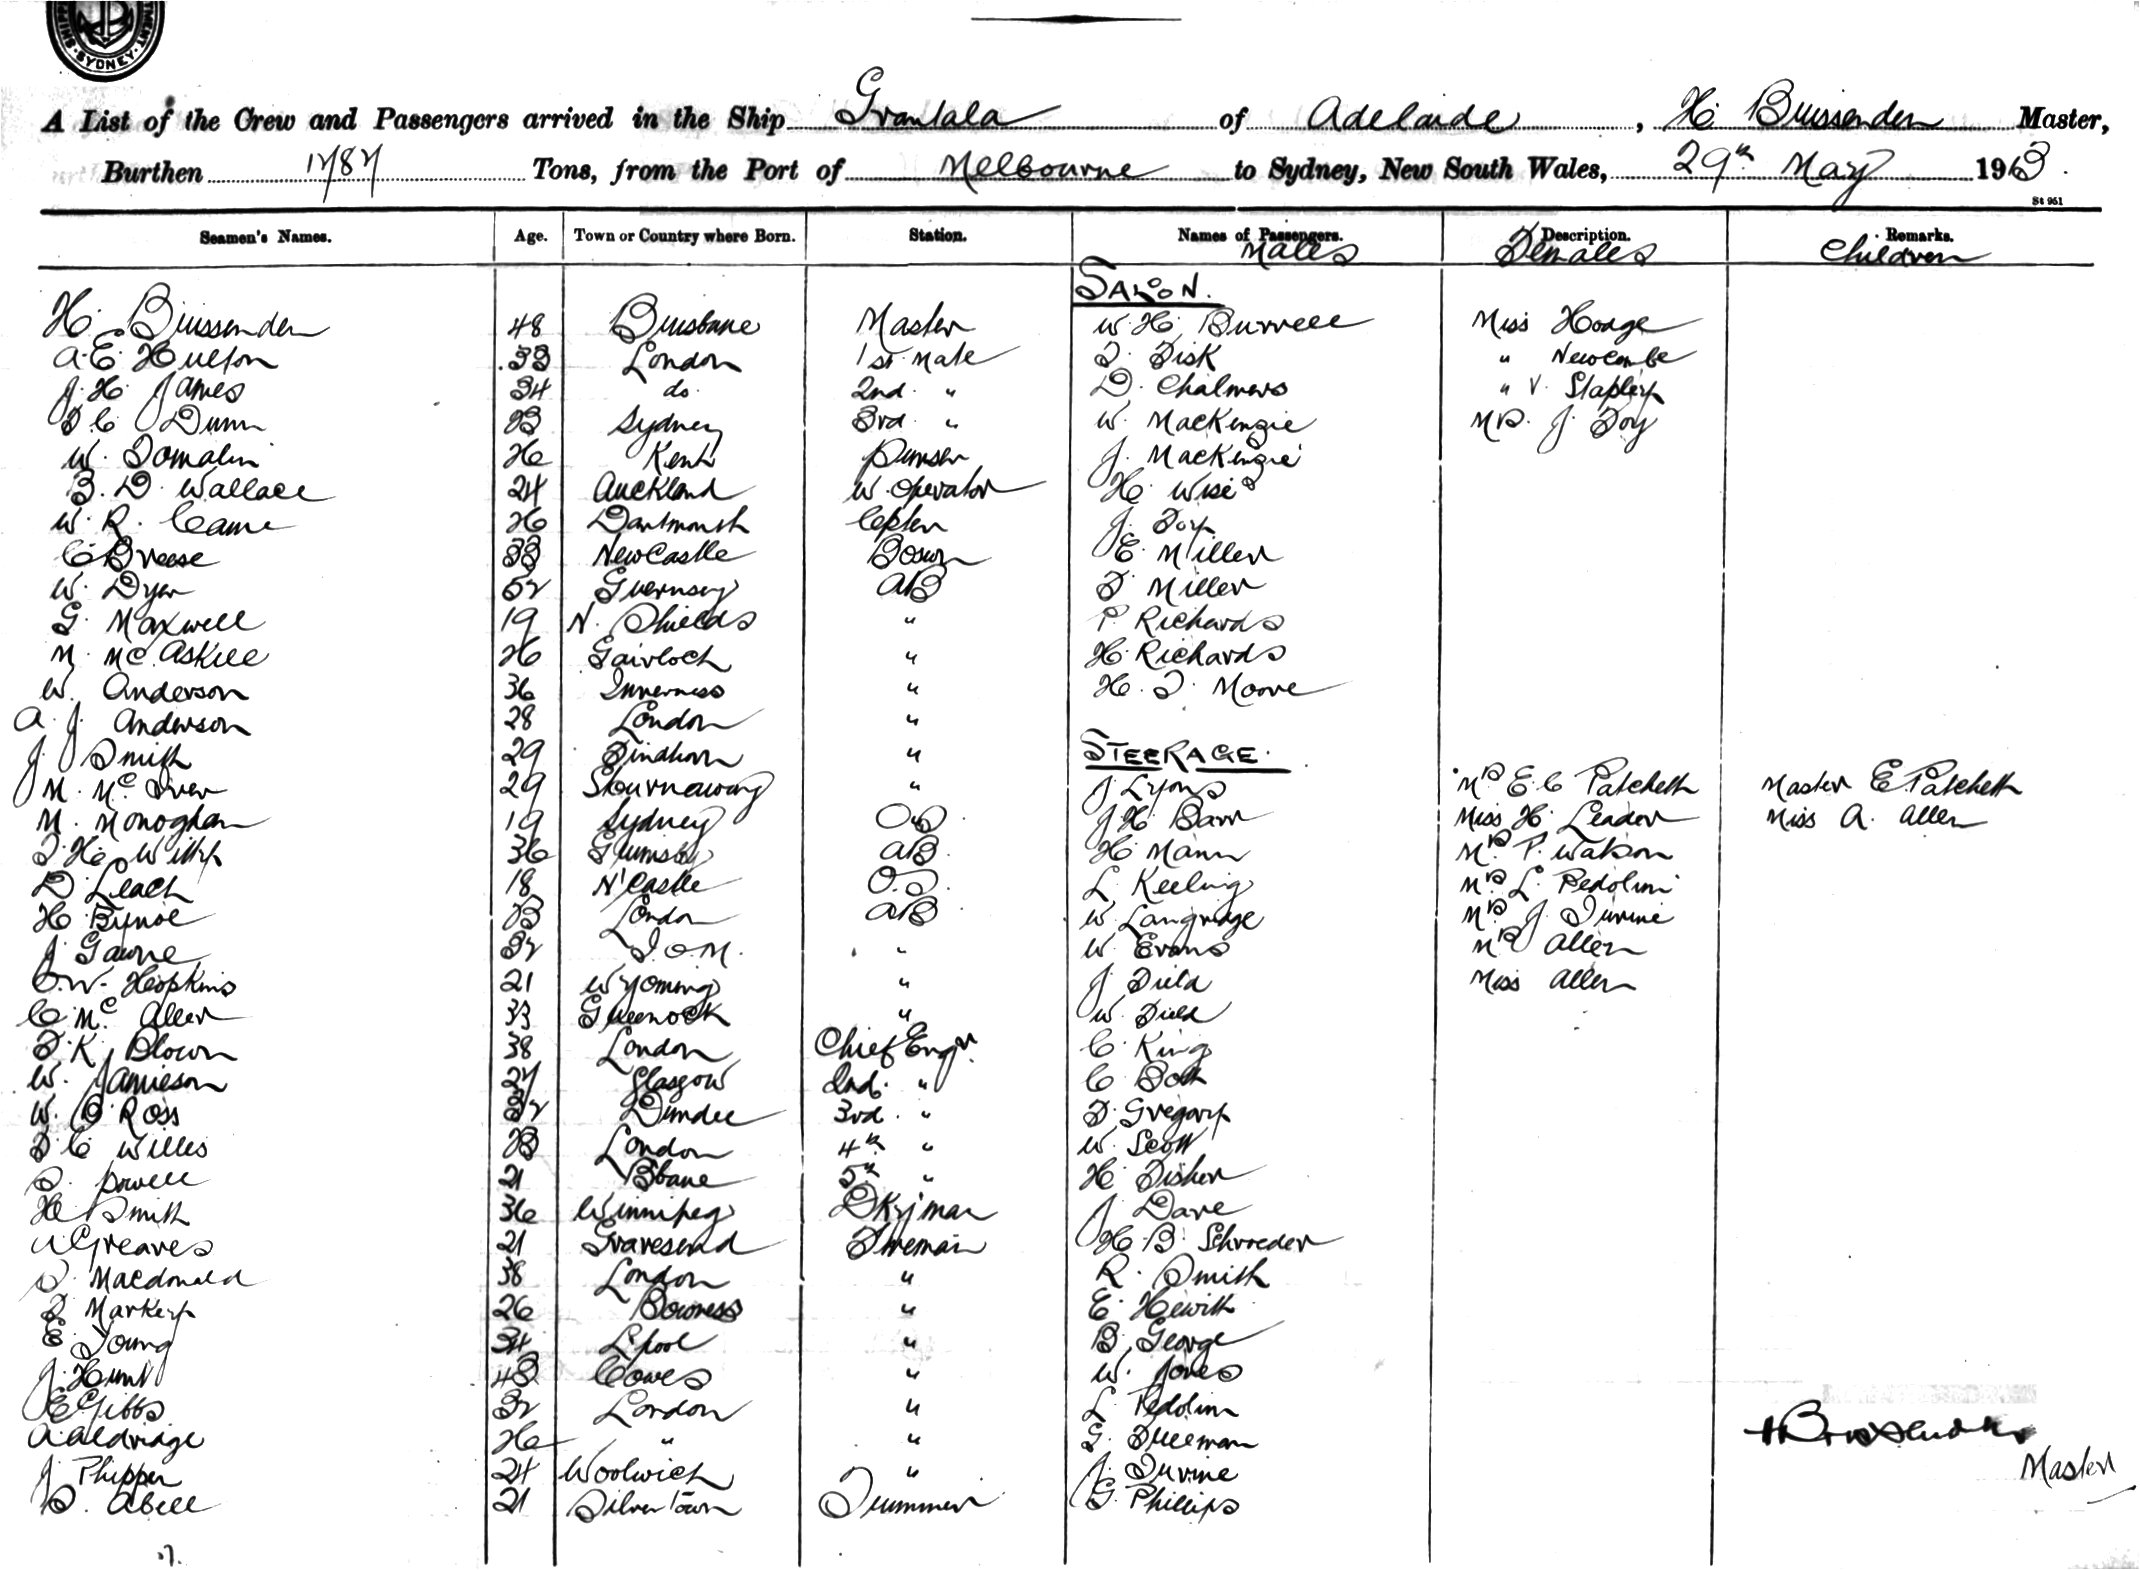 SYDNEY
A List of the Crew and Passengers arrived in the Ship Grantala of Adelaide, H. Brissenden Master,
Burthen 1787 Tons, from the Port of Melbourne to Sydney, New South Wales, 29th May 1913.
St 951
Seamen's Names. Age. Town or Country where Born. Station. Names of Passengers. Description. Remarks.
Males Females Children
SALOON.
H. Brissenden 48 Brisbane Master W. H. Burrell Miss Hodge
A. E. Hulton 33 London 1st Mate F. Fisk " Newcombe
J. H. James 34 do. 2nd. " D. Chalmers " V. Stapley
F. C. Dunn 23 Sydney 3rd. " W. MacKenzie Mrs. J. Foy
W. Tomalin 26 Kent Purser J. MacKenzie
B. D. Wallace 24 Auckland W. Operator H. Wise
W. R. Came 26 Dartmouth Cpter J. Foy
C. Breese 33 NewCastle Bosun E. Miller
W. Dyer 52 Guernsey AB F. Miller
G. Maxwell 19 N. Shields " P. Richards
M. McAskill 26 Gairloch " H. Richards
W. Anderson 36 Inverness " H. T. Moore
A. J. Anderson 28 London "
J. Smith 29 Findhorn " STEERAGE.
M. McIver 29 Stournaway " J. Lyons Mrs E C Patchett Master E. Patchett
M. Monoghan 19 Sydney OS J. H. Barr Miss H. Leader Miss A. Allen
T. H. Willy 36 Grimsby AB. H. Mann Mrs P. Watson
D. Leach 18 N'Castle O.S. L. Keeling Mrs L. Pedolini
H. Bynoe 23 London AB W. Langridge Mrs J. Irvine
J. Gawne 32 I.O.M. " W. Evans Mrs Allen
C. W. Hopkins 21 Wyoming " J. Field Miss Allen
C. McAllen 33 Greenock " W. Field
F. K. Blown 38 London Chief Engr. C. King
W. Jamieson 27 Glasgow 2nd. " C. Bott
W. O. Ross 32 Dundee 3rd. " F. Gregory
F. C. Willis 23 London 4th. " W. Scott
S. Powell 21 B'bane 5th. " H. Fisher
H. Smith 36 Winnipeg Dkyman J. Dave
A. Greaves 21 Gravesend Fireman H. B. Schroeder
D. Macdonald 38 London " R. Smith
F. Markey 26 Bowness " E. Hewitt
E. Young 34 L'pool " B. George
J. Hunt 43 Cowes " W. Jones
E. Gibbs 32 London " L. Pedolini
A. Aldridge 26 " " G. Freeman
J. Phipper 24 Woolwich " J. Irvine
S. Abell 21 Silver Town Trimmer G. Phillips
H Brissenden
Master